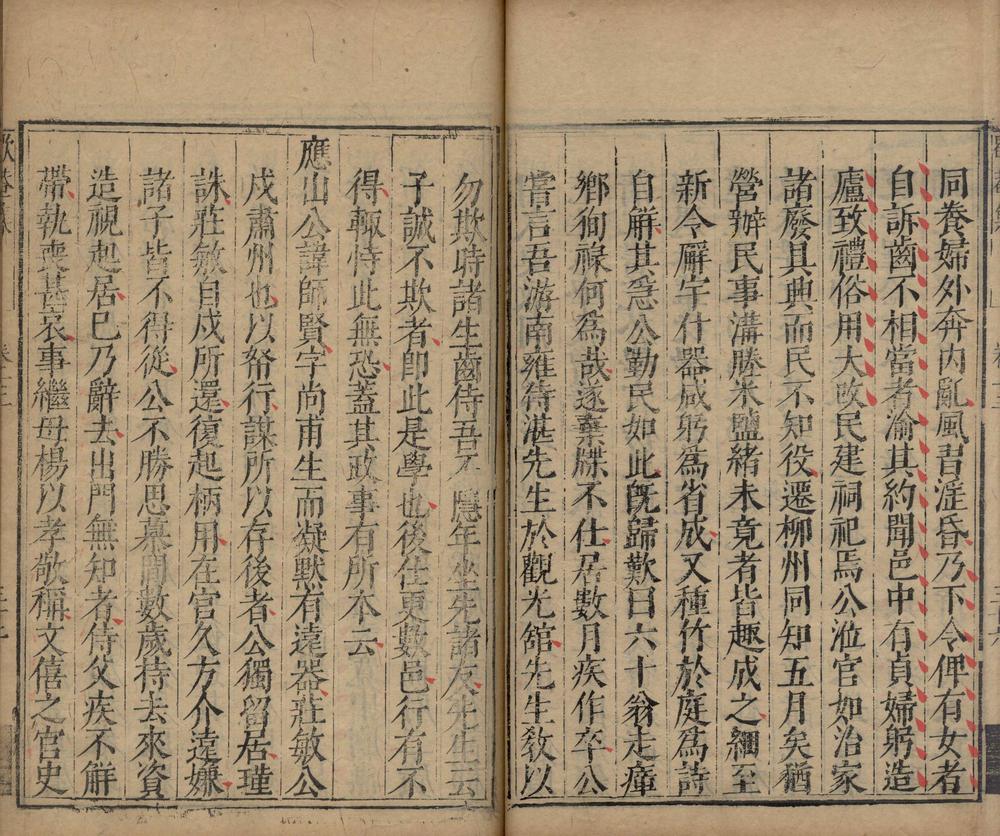 同養婦外奔內亂風昔淫昏乃下令俾有女者
自訴齒不相當者渝其約聞邑中有貞婦躬造
廬致禮俗用大改民建祠祀焉公涖官如治家
諸廢具典而民不知役遷柳州同知五月矣猶
營辦民事溝塍米鹽緒未竟者皆趣成之細至
新令廨宇什器咸躬為省成又種竹於庭為詩
自觧其爲公勤民如此旣歸歎曰六十翁走瘴
鄉徇祿何為哉遂棄牒不仕居數月疾作卒公
嘗言吾游南雍待湛先生於觀光舘先生教以
勿欺時諸生齒侍吾不隱年坐先諸友先生云
子誠不欺者卽此是學也後仕更數邑行有不
得輙恃此無恐蓋其政事有所本云
應山公諱師賢字尚甫生而凝默有遠器莊敏公
戍肅州也以帑行謀所以存後者公獨留居瑾
誅莊敏自戍所還復起柄用在官久方介遠嫌
諸子皆不得從公不勝思慕間數歲待去來資
造視起居已乃辭去出門無知者侍父疾不觧
帶執喪甚哀事繼母楊以孝敬稱文僖之官史